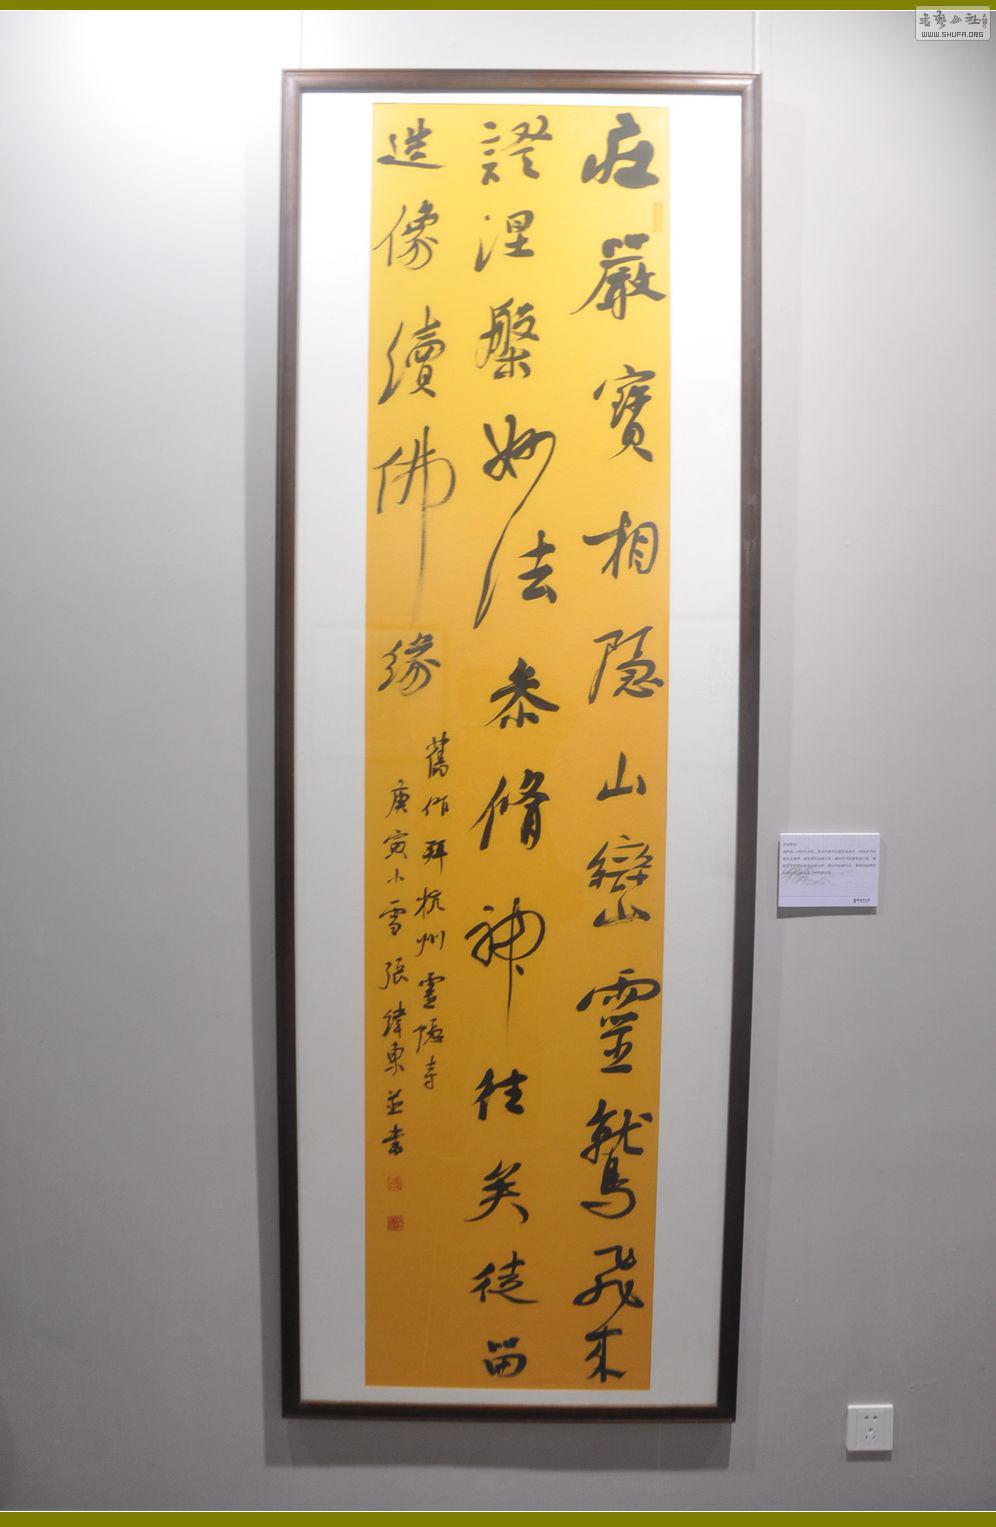 莊嚴寶相隱山巒靈鷲飛來
證涅槃妙法參脩神往矣徒留
造像續佛緣
舊作拜杭州靈隱寺
庚寅小雪張緯東並書
WWW.SHUFA.ORG